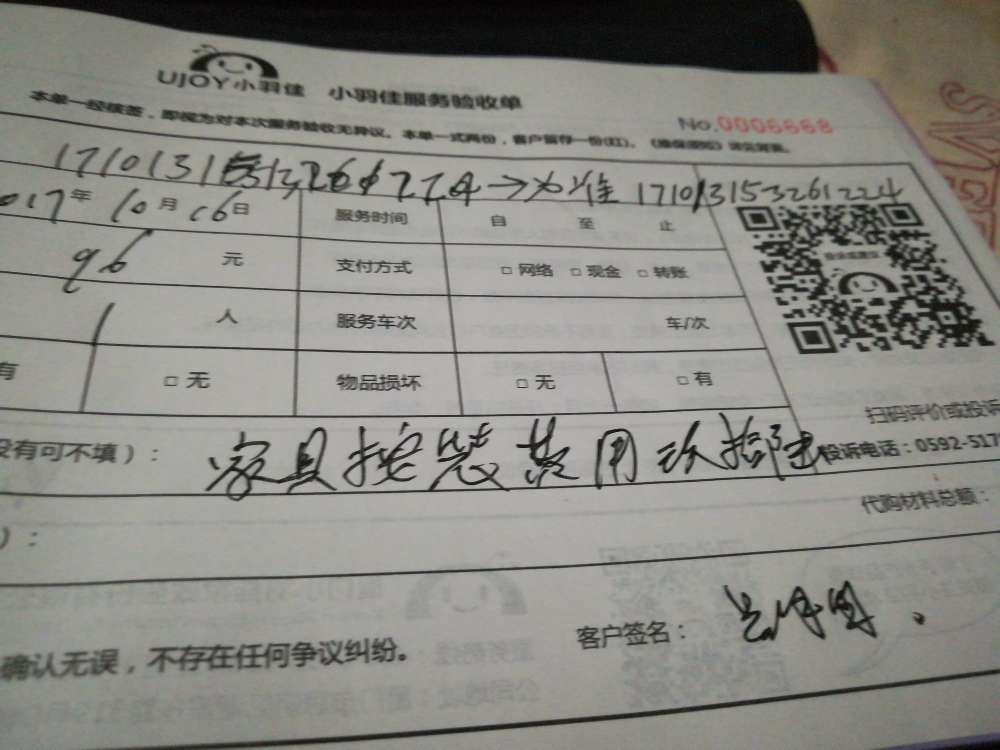 UJOY小羽佳 小羽佳服务验收单
No.0006668
本单一经核签，即视为对本次服务验收无异议。本单一式两份，客户留存一份(红)。
→为准 171013153261224
2017年10月16日 服务时间 自 至 止
96 元 支付方式 □网络 □现金 □转账
1 人 服务车次 车/次
有 □无 物品损坏 □无 □有
扫码评价或投诉
没有可不填）： 家具按装费用 投诉电话：0592-517
代购材料总额：
）：
客户签名：
确认无误，不存在任何争议纠纷。